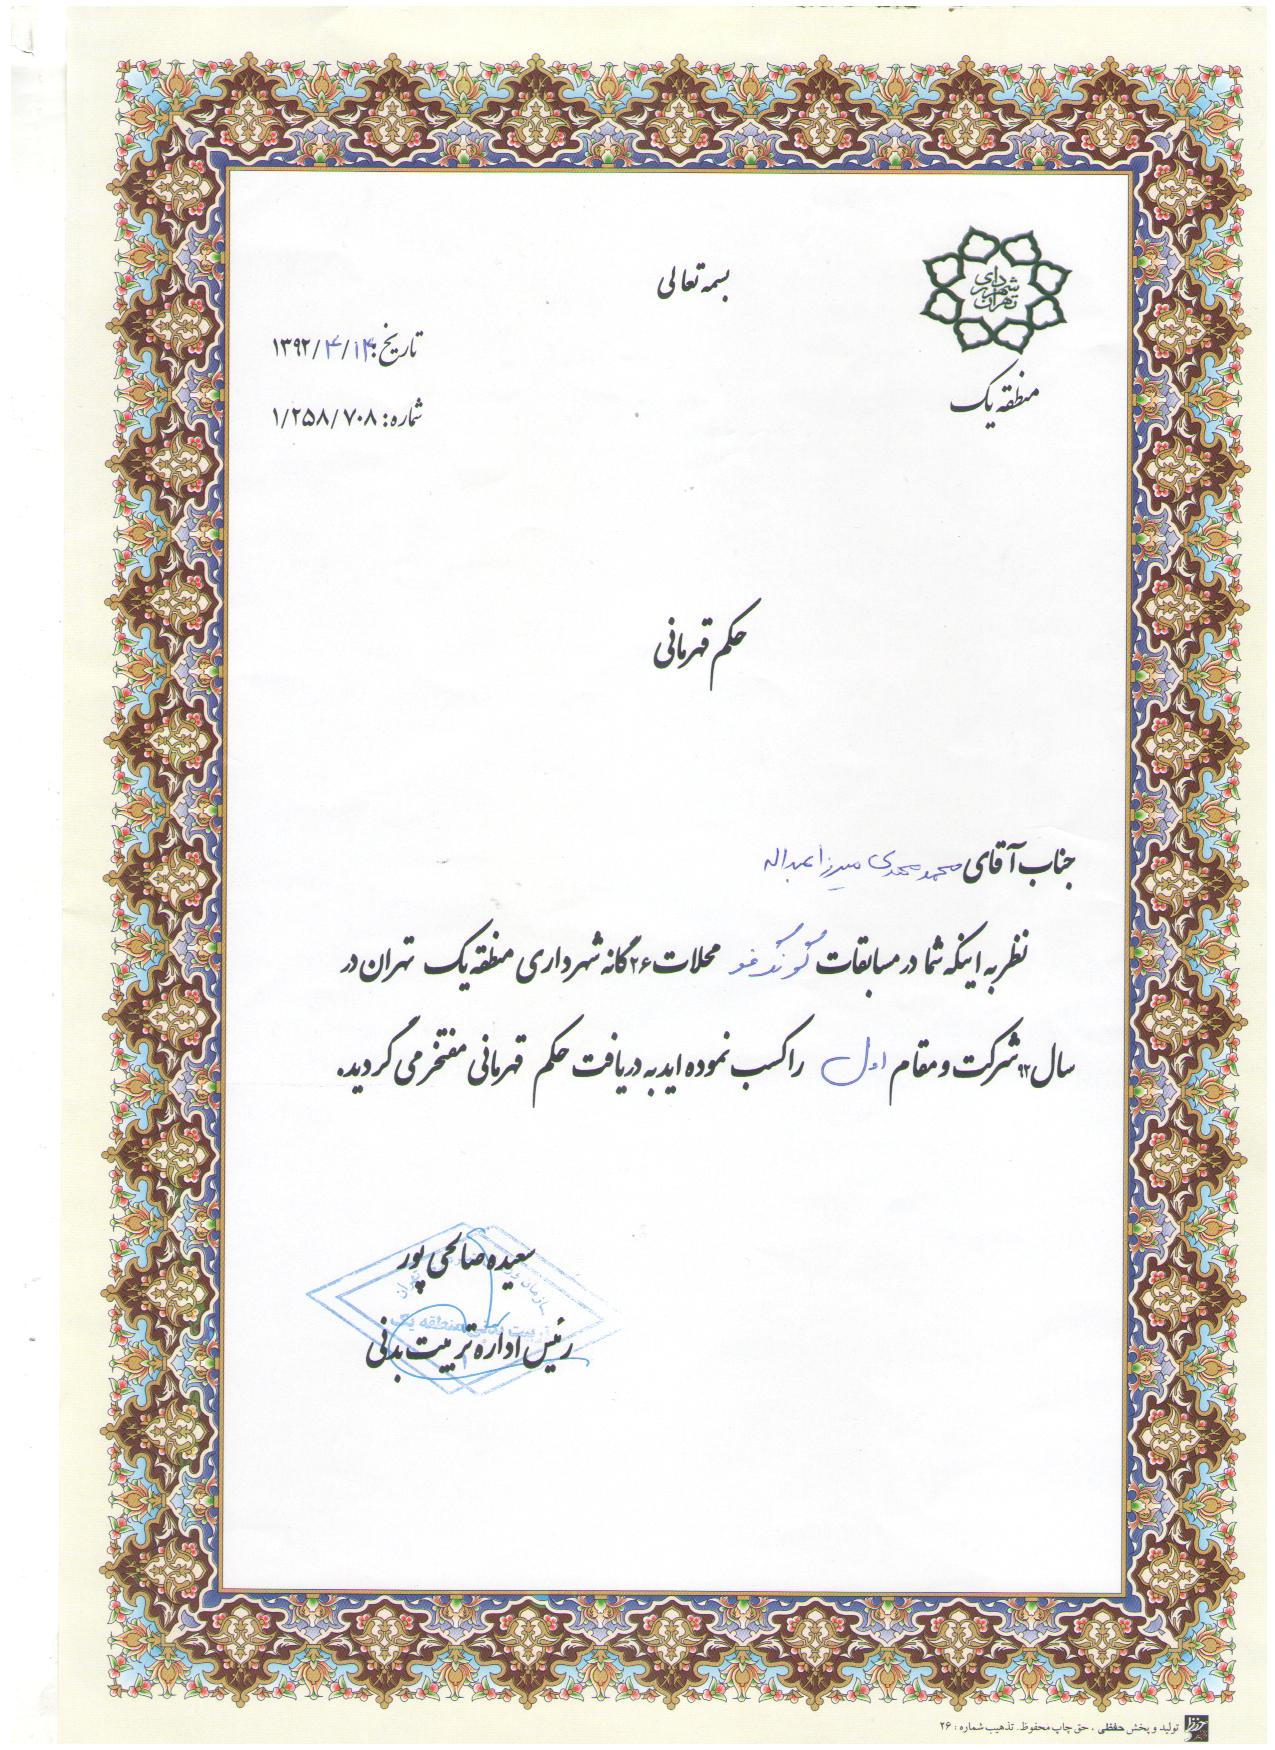 بسمه تعالی
شهرداری تهران
منطقه یک
تاریخ: ۱۳۹۲/۴/۱۴
شماره: ۱/۲۵۸/۷۰۸
حکم قهرمانی
جناب آقای محمد مهدی میرزا عبداله
نظر به اینکه شما در مسابقات گونگ فو محلات ۲۶ گانه شهرداری منطقه یک تهران در
سال ۹۲ شرکت و مقام اول را کسب نموده اید به دریافت حکم قهرمانی مفتخر می گردید.
سعیده صالحی پور
رئیس اداره تربیت بدنی
سازمان تهران
تربیت بدنی منطقه یک
تولید و پخش حفظی . حق چاپ محفوظ . تذهیب شماره : ۲۶